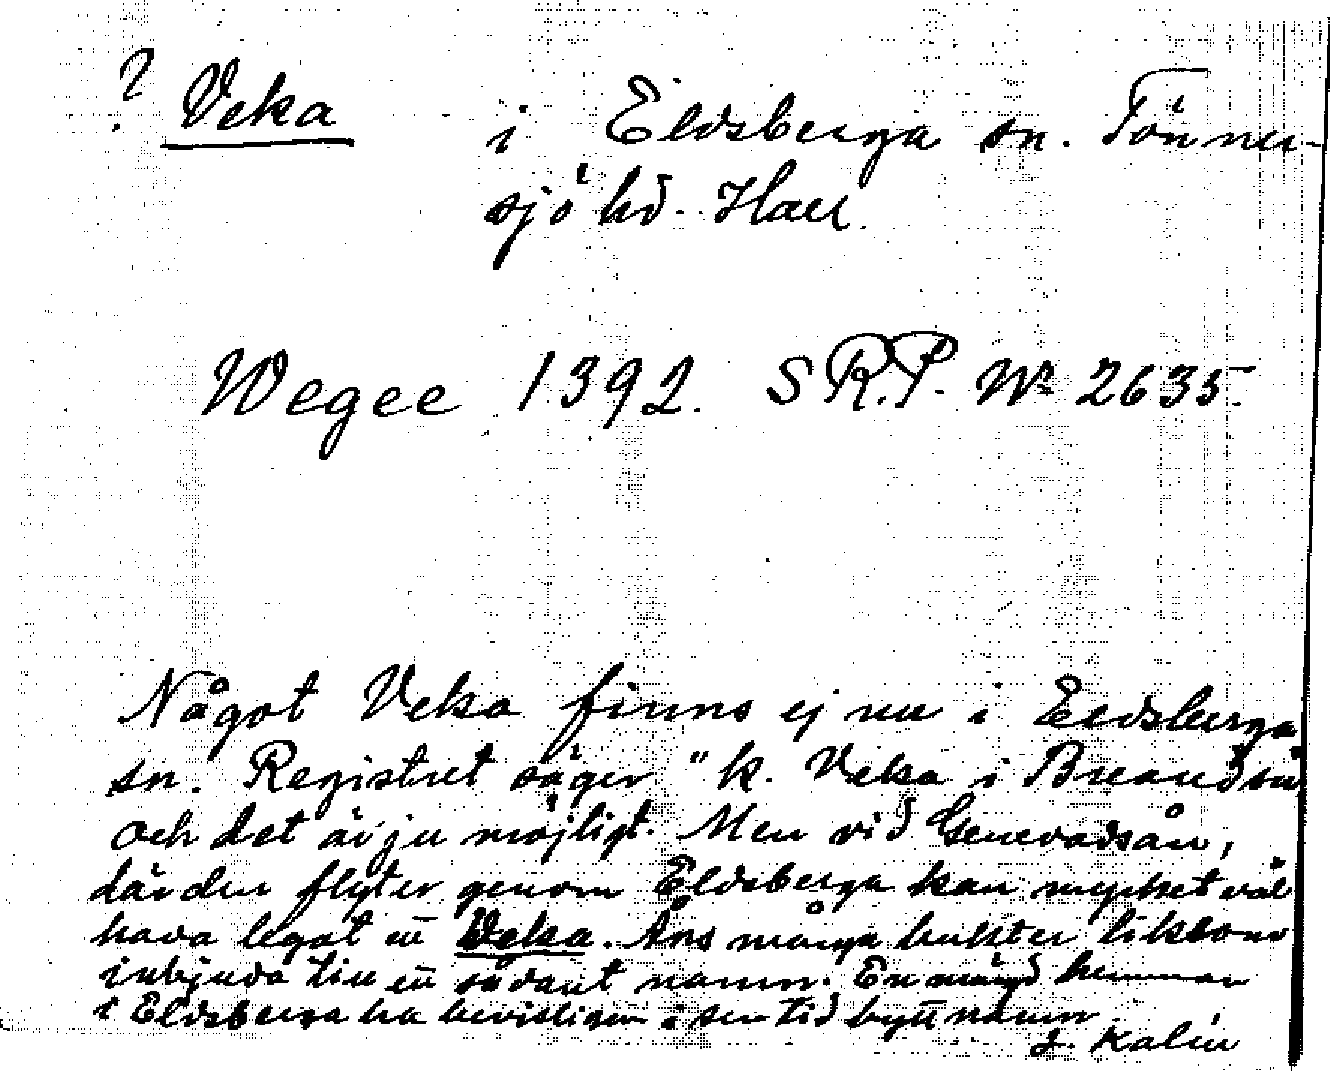 ? Veka i Eldsberga sn. Tönner-
sjö hd. Hall.
Wegee 1392. S R.P. No 2635.
Något Veka finns ej nu i Eldsberga
sn. Registret säger "k. Veka i
och det är ju möjligt. Men vid Genevadsån,
där den flyter genom Eldsberga kan mycket väl
hava legat ett Veka. Åns många bukter liksom
inbjuda till ett sådant namn. En mängd hemman
i Eldsberga ha bevisligen i sen tid bytt namn.
J. Kalén